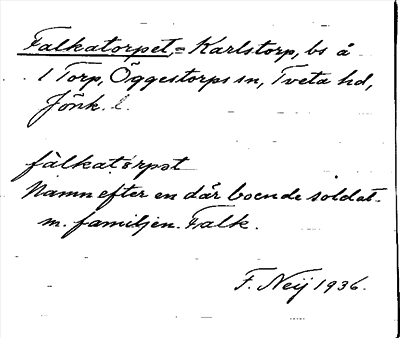 Falkatorpet, = Karlstorp, bs å
1 Torp, Öggestorps sn, Tveta hd,
Jönk. l.
fàlkatòrpət
Namn efter en där boende soldat.
m. familjen. Falk.
F. Neij 1936.